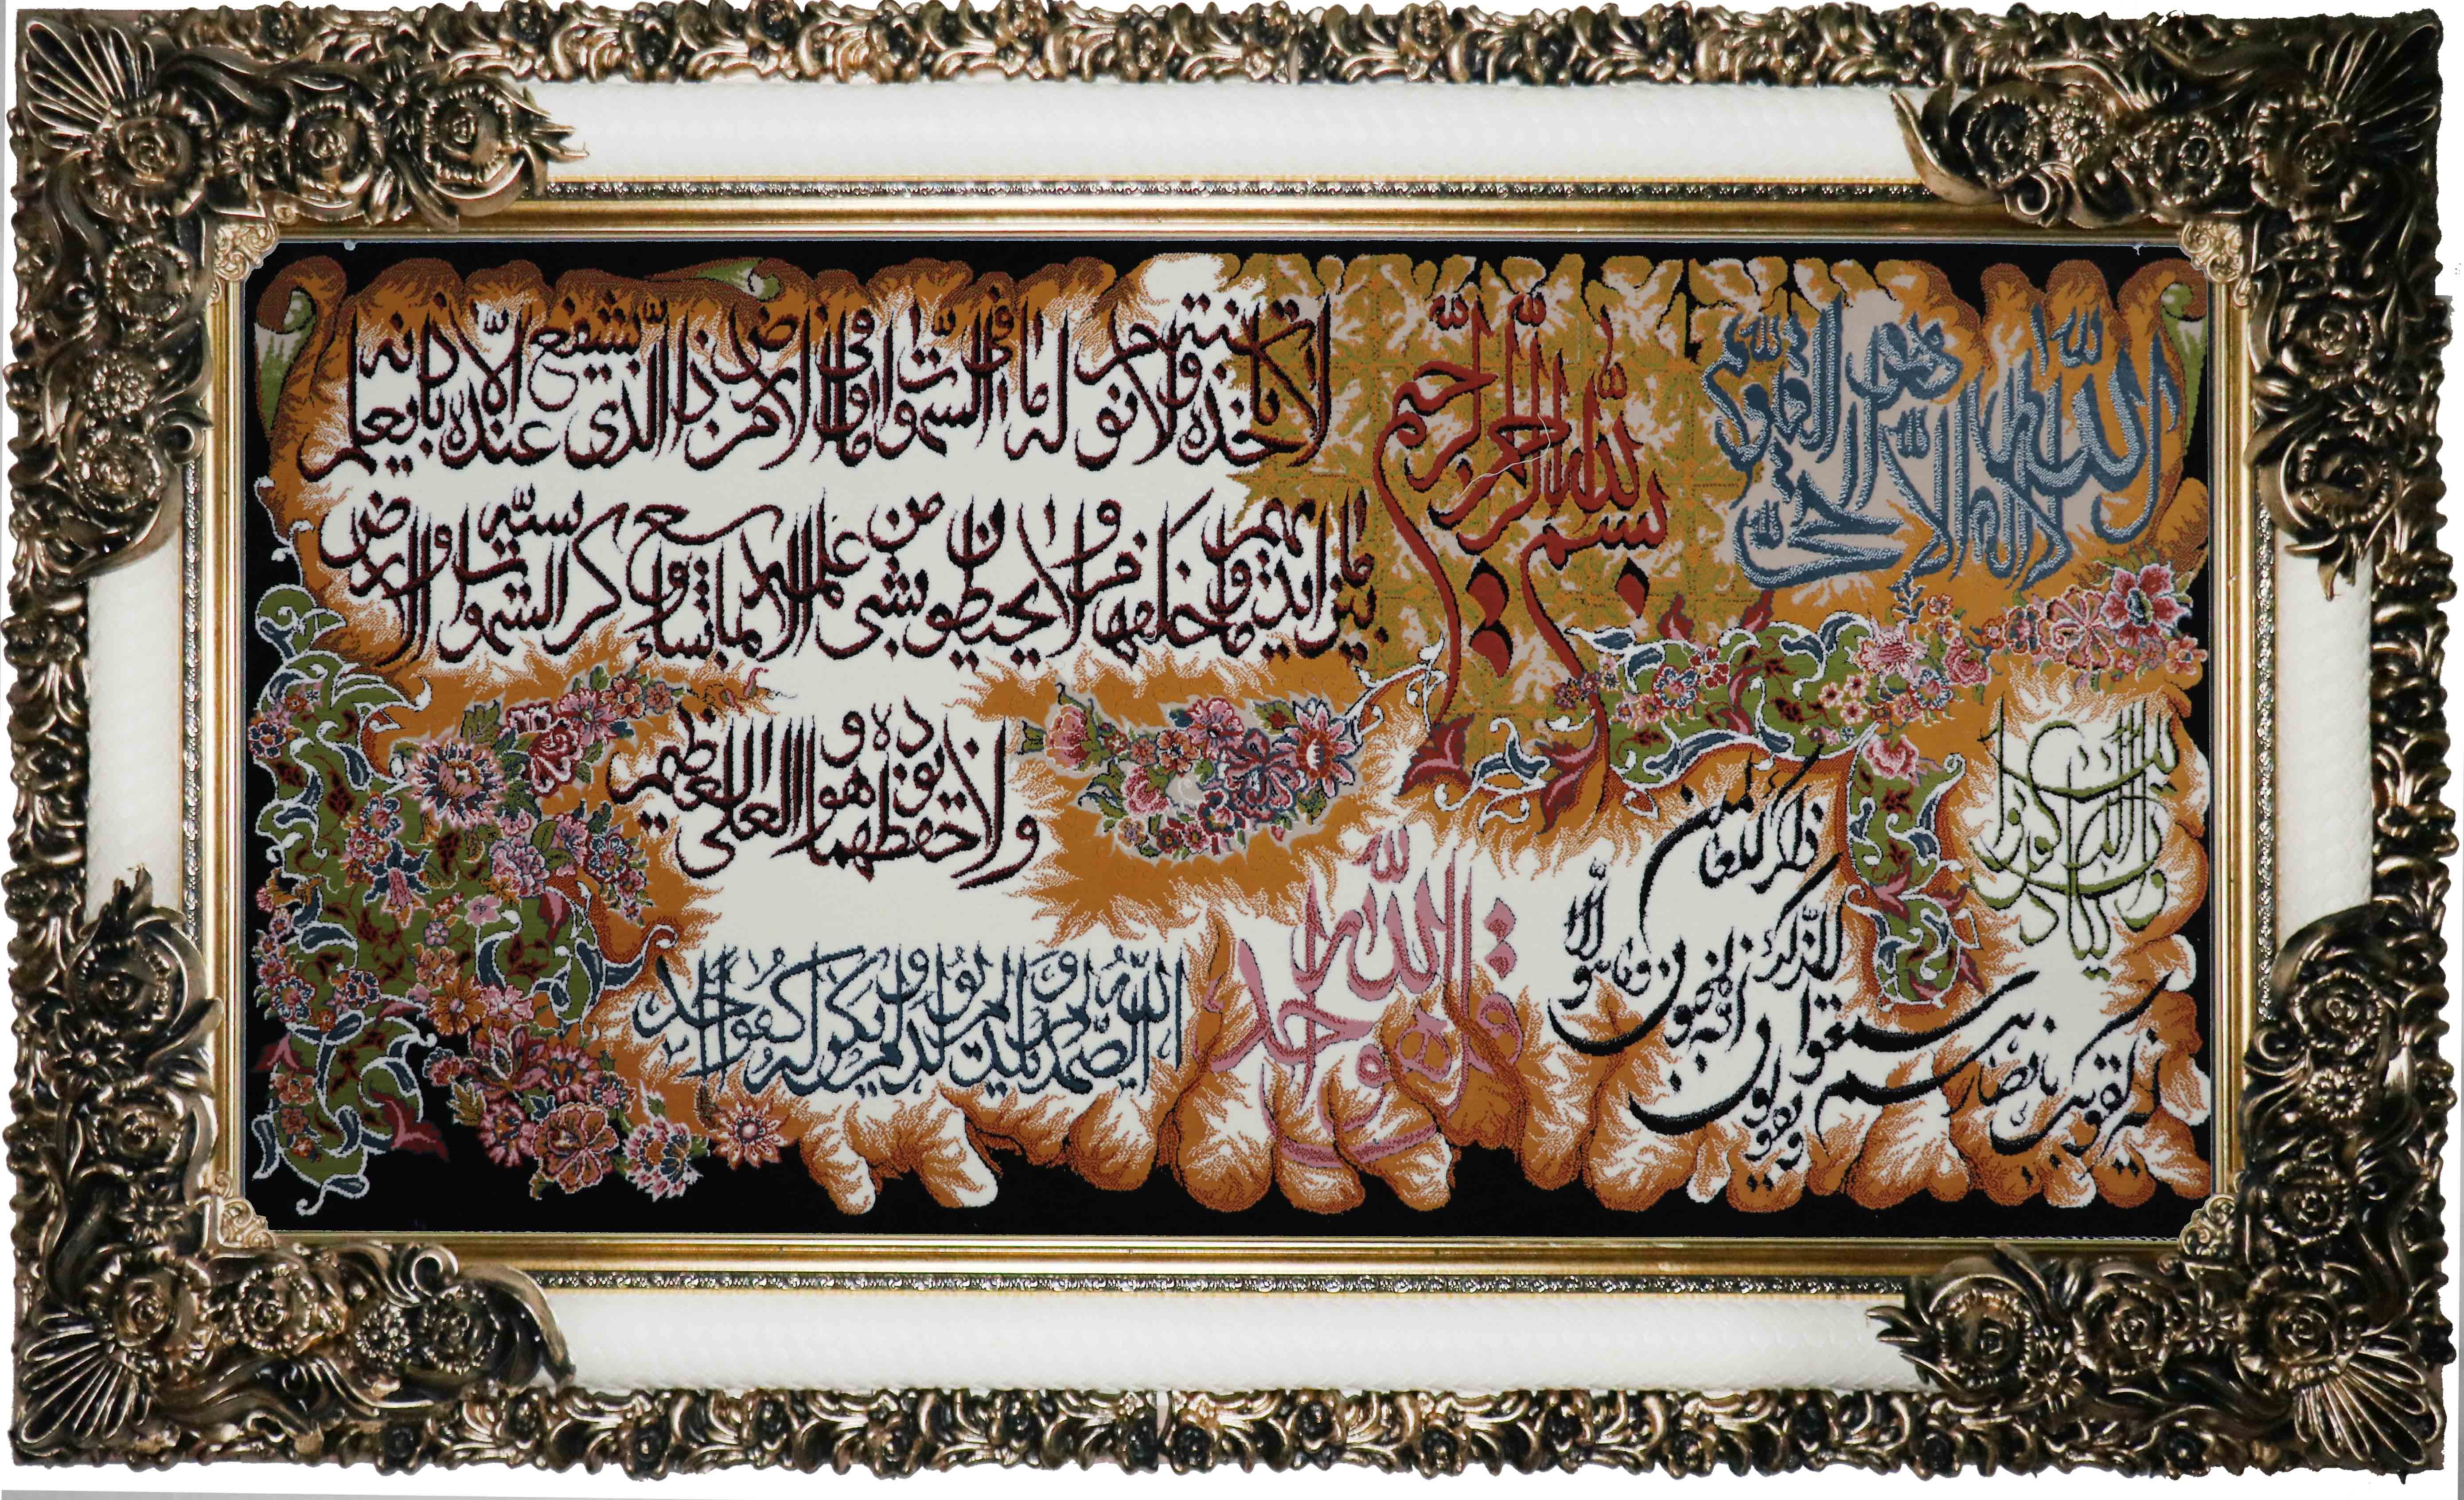 بسم الله الرحمن الرحيم
الله لا اله الا هو الحي القيوم
لا تاخذه سنة ولا نوم له ما في السموات وما في الارض من ذا الذي يشفع عنده الا باذنه يعلم
ما بين ايديهم وما خلفهم ولا يحيطون بشيء من علمه الا بما شاء وسع كرسيه السموات والارض
ولا يؤده حفظهما وهو العلي العظيم
وان يكاد الذين كفروا
ليزلقونك بابصارهم
لما سمعوا
الذكر ويقولون
انه لمجنون وما هو الا
ذكر للعالمين
قل هو الله احد
الله الصمد لم يلد ولم يولد ولم يكن له كفوا احد